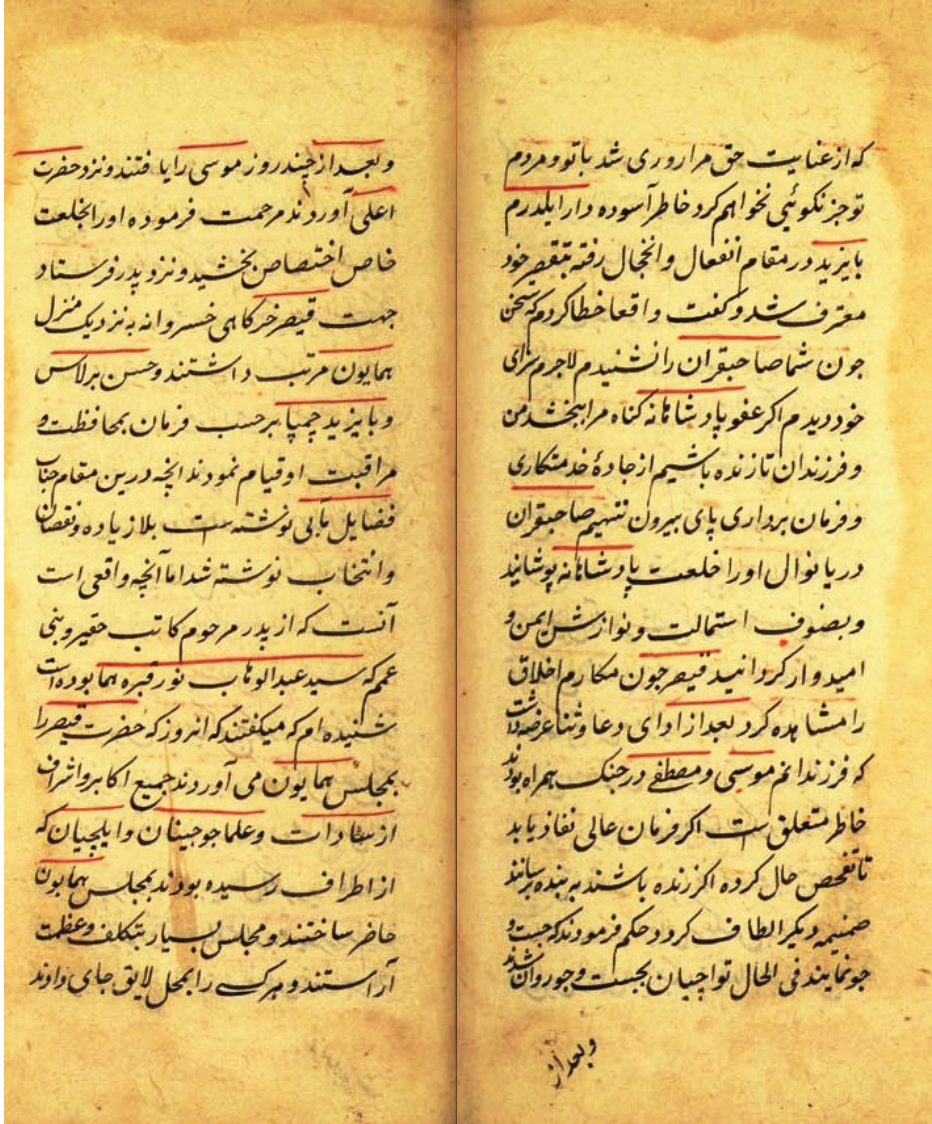 که از عنایت حق مرا روری شد با تو و مردم
تو جز نکوئی نخواهم کرد خاطر آسوده دار ایلدرم
بایزید در مقام انفعال و انخجال رفته بتقصیر خود
معترف شد و کفت واقعا خطا کردم که سخن
جون شما صاحبقران را نشنیدم لاجرم سزای
خود دیدم اکر عفو پادشاهانه کناه مرا ببخشد من
و فرزندان تا زنده باشیم از جادهٔ خدمتکاری
و فرمان برداری پای بیرون ننهیم صاحبقران
دریا نوال او را خلعت پادشاهانه پوشانید
و بصنوف استمالت و نوازش ایمن و
امیدوار کردانید قیصر جون مکارم اخلاق
را مشاهده کرد بعد از ادای دعا و ثنا عرضه داشت
که فرزندانم موسی و مصطفے در جنک همراه بودند
خاطر متعلق است اکر فرمان عالی نفاذ یابد
تا تفحص حال کرده اکر زنده باشند به بنده برسانند
ضمنیمه دیکر الطاف کردد حکم فرمودند که جست و
جو نمایند فی الحال تواجیان بجست و جو روان شدند
و بعد از
و بعد از چند روز موسی را یافتند و نزد حضرت
اعلی آوردند مرحمت فرموده او را بخلعت
خاص اختصاص بخشید و نزد پدر فرستاد
جهت قیصر خرکاهی خسروانه به نزدیک منزل
همایون مرتب داشتند و حسن برلاس
و بایزید چمپا بر حسب فرمان بمحافظت و
مراقبت او قیام نمودند انچه درین مقام جناب
فضایل مآبی نوشته است بلا زیاده و نقصان
و انتخاب نوشته شد اما آنچه واقعی است
آنست که از پدر مرحوم کاتب حقیر و بنی
عمم که سید عبدالوهاب نور قبره هما بوده است
شنیده ام که میکفتند که انروز که حضرت قیصر را
بمجلس همایون می آوردند جمیع اکابر و اشراف
از سادات و علما جوجینان و ایلچیان که
از اطراف رسیده بودند بمجلس همایون
حاضر ساختند و مجلس بسیار بتکلف و عظمت
آراستند و هر کسے را بمحل لایق جای دادند